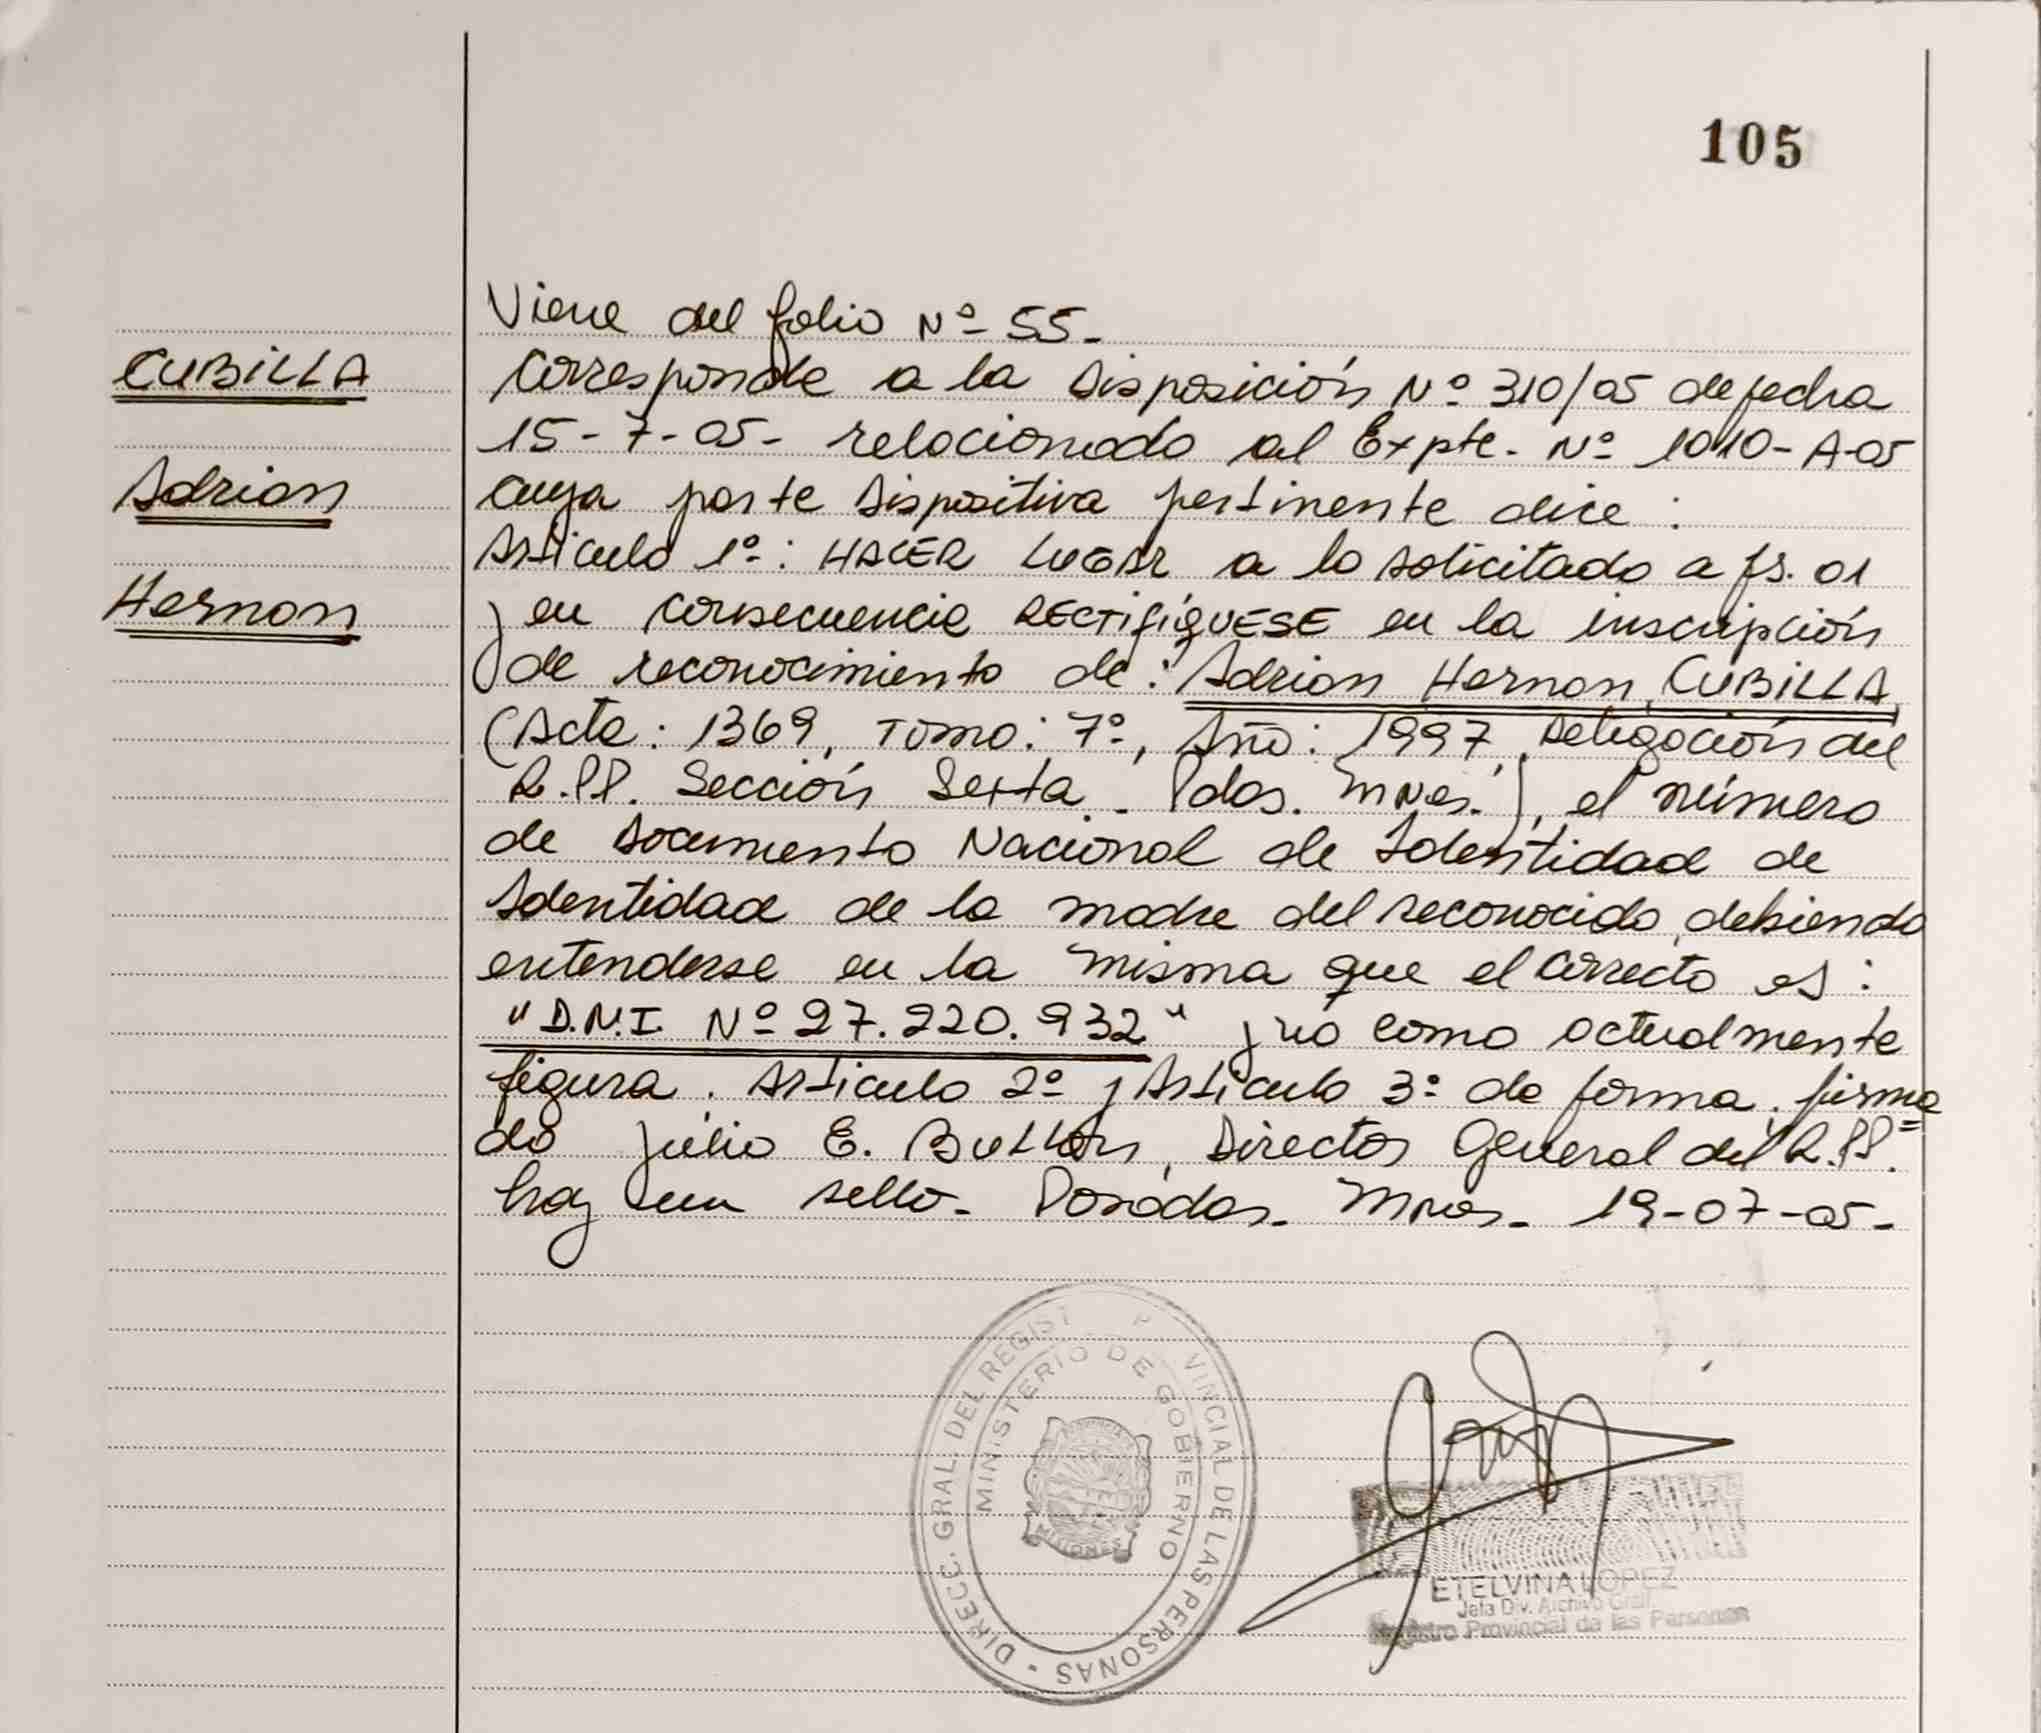 105
CUBILLA
Adrian
Hernan
Viene del folio Nº 55-
Corresponde a la Disposición Nº 310/05 de fecha
15-7-05- relacionado al Expte. Nº 1010-A-05
cuya parte dispositiva pertinente dice:
Articulo 1º: HACER LUGAR a lo solicitado a fs. 01
y en consecuencia RECTIFÍQUESE en la inscripción
de reconocimiento de: Adrian Hernan CUBILLA
(Acta: 1369, Tomo: 7º, Año: 1997, Delegación del
R.PP. Sección Sexta. Pdas. Mnes.), el número
de Documento Nacional de Identidad de
Identidad de la madre del reconocido, debiendo
entenderse en la misma que el correcto es:
"D.N.I. Nº 27.220.932" y no como actualmente
figura. Articulo 2º y Articulo 3º de forma. firma
do Julio E. , Director General del R.PP.=
hay un sello- Posadas- Mnes- 19-07-05-
DIRECC. GRAL. DEL REGIST P VINCIAL DE LAS PERSONAS -
MINISTERIO DE GOBIERNO
MISIONES
ETELVINA LOPEZ
Jefa Div. Archivo Gral.
Registro Provincial de las Personas